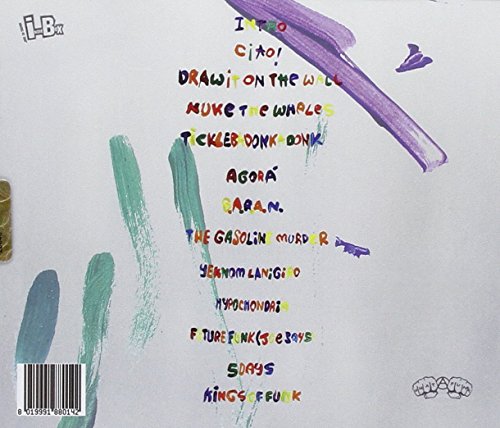 i-Bx
INTRO
CIAO!
DRAWiT ON THE WALL
NUKE THE WHALES
TICKLEBADONKADONK
AGORÁ
G.A.R.A.N.
THE GASOLINE MURDER
YEKNOM LANIGIRO
HYPOCHONDRIA
FUTUREFUNK(JOESAYS
5DAYS
KINGSOFFUNK
8 019991 880142